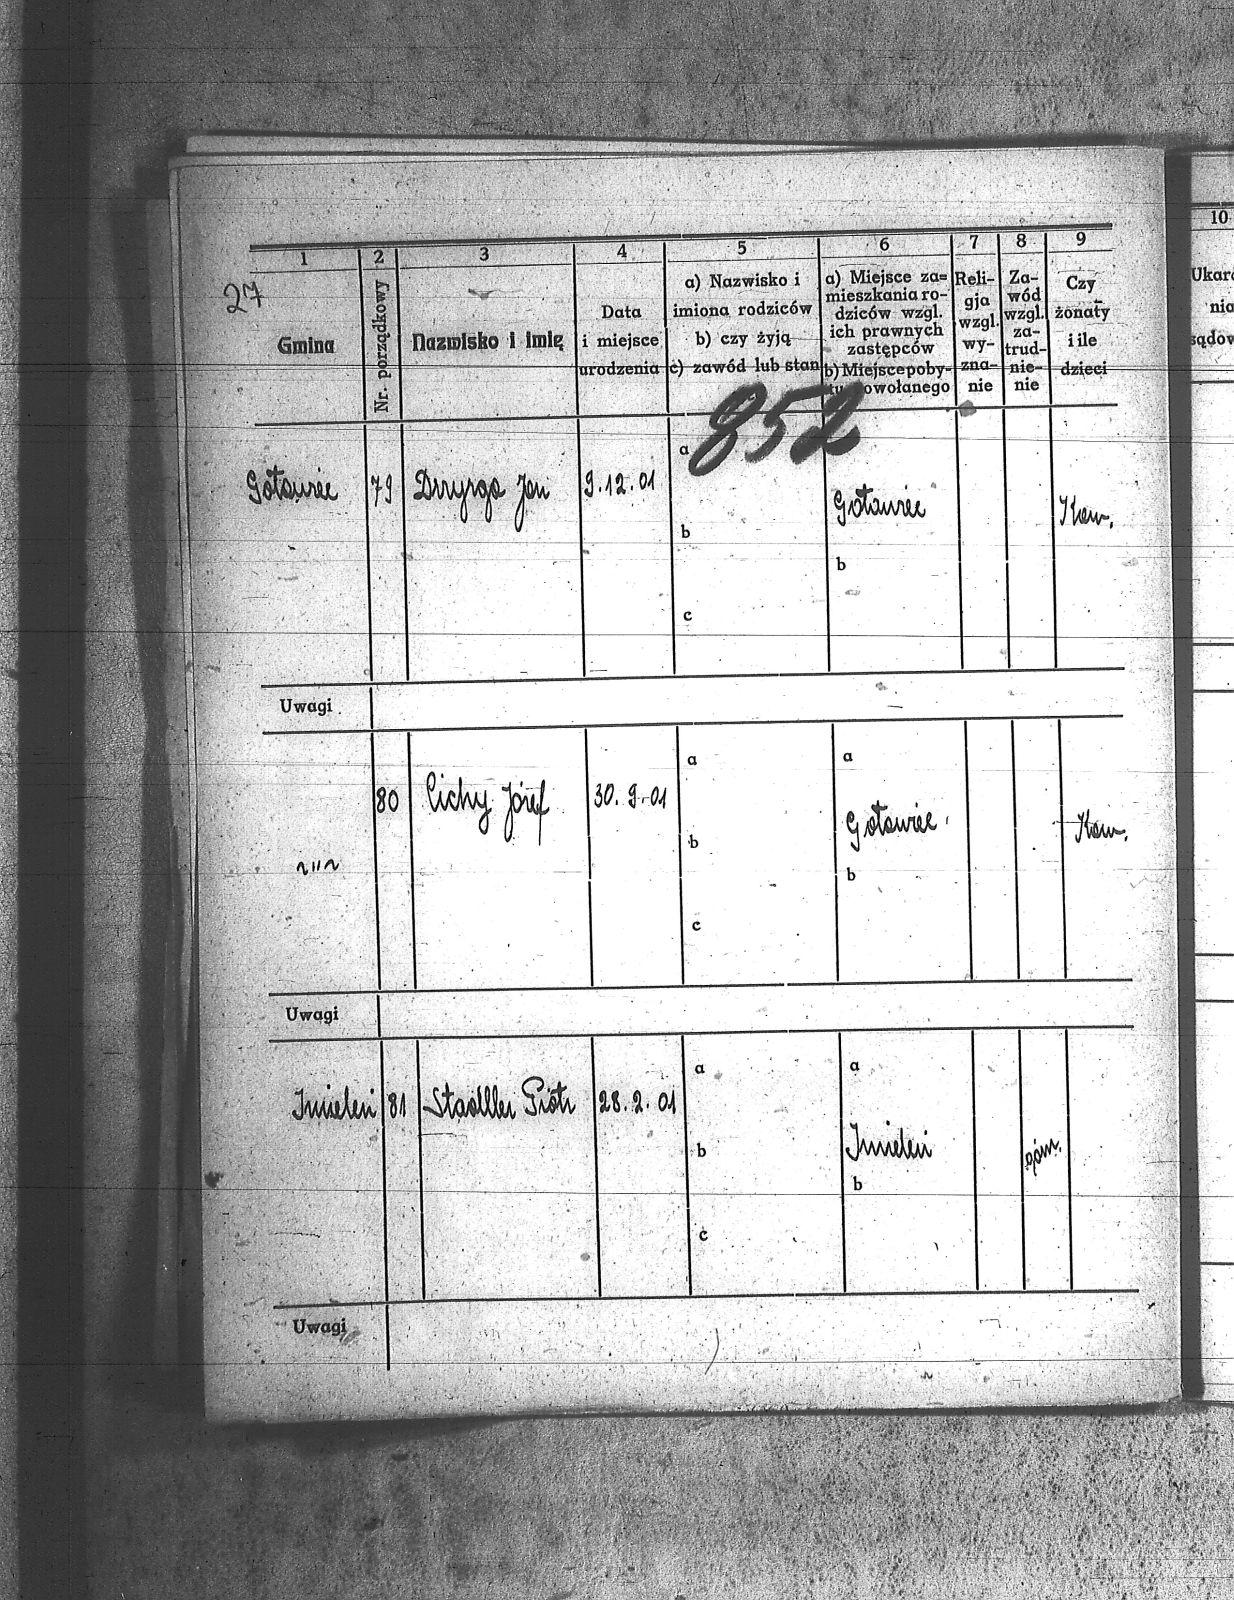 27
1 2 3 4 5 6 7 8 9 10
Gmina
Nr. porządkowy
Nazwisko i imię
Data
i miejsce
urodzenia
a) Nazwisko i
imiona rodziców
b) czy żyją
c) zawód lub stan
a) Miejsce za=
mieszkania ro-
dziców wzgl.
ich prawnych
zastępców
b) Miejsce poby-
tu powołanego
Reli-
gja
wzgl.
wy-
zna-
nie
Za-
wód
wzgl.
za-
trud-
nie-
nie
Czy
żonaty
i ile
dzieci
852
a
79 Jan 9.12.01
b
b
c
Uwagi
a a
80 Cichy Józef 30.9.01
b
~"~
b
c
Uwagi
a a
Imieleń 81 Stadller Piotr 28.2.01
b Imieleń
górn.
b
c
Uwagi